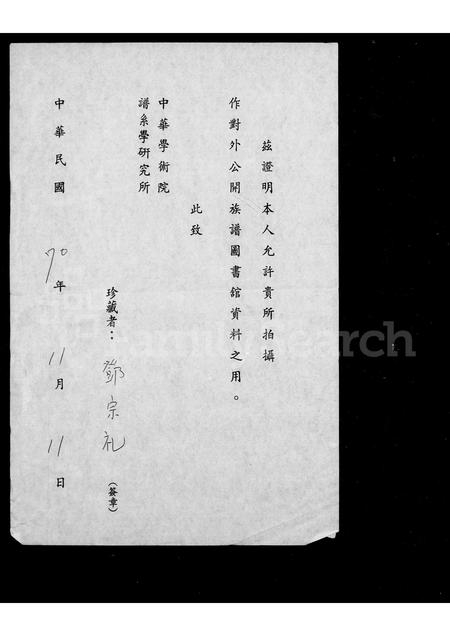 茲證明本人允許貴所拍攝
作對外公開族譜圖書館資料之用。
此致
中華學術院
譜系學研究所
珍藏者：鄧宗礼（簽章）
中華民國70年11月11日
FamilySearch